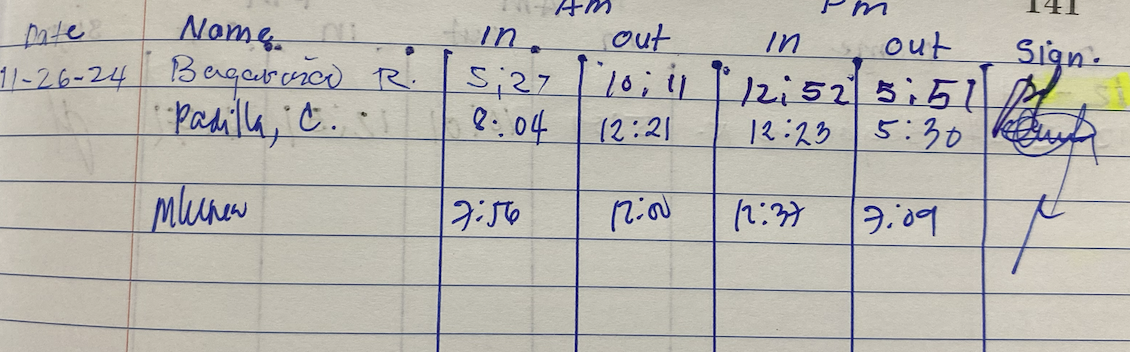 Am Pm 141
Date Name In out In out Sign.
11-26-24 R. 5:27 10:11 12:52 5:51
Padilla, C. 8:04 12:21 12:23 5:30
7:56 12:00 12:37 7:09